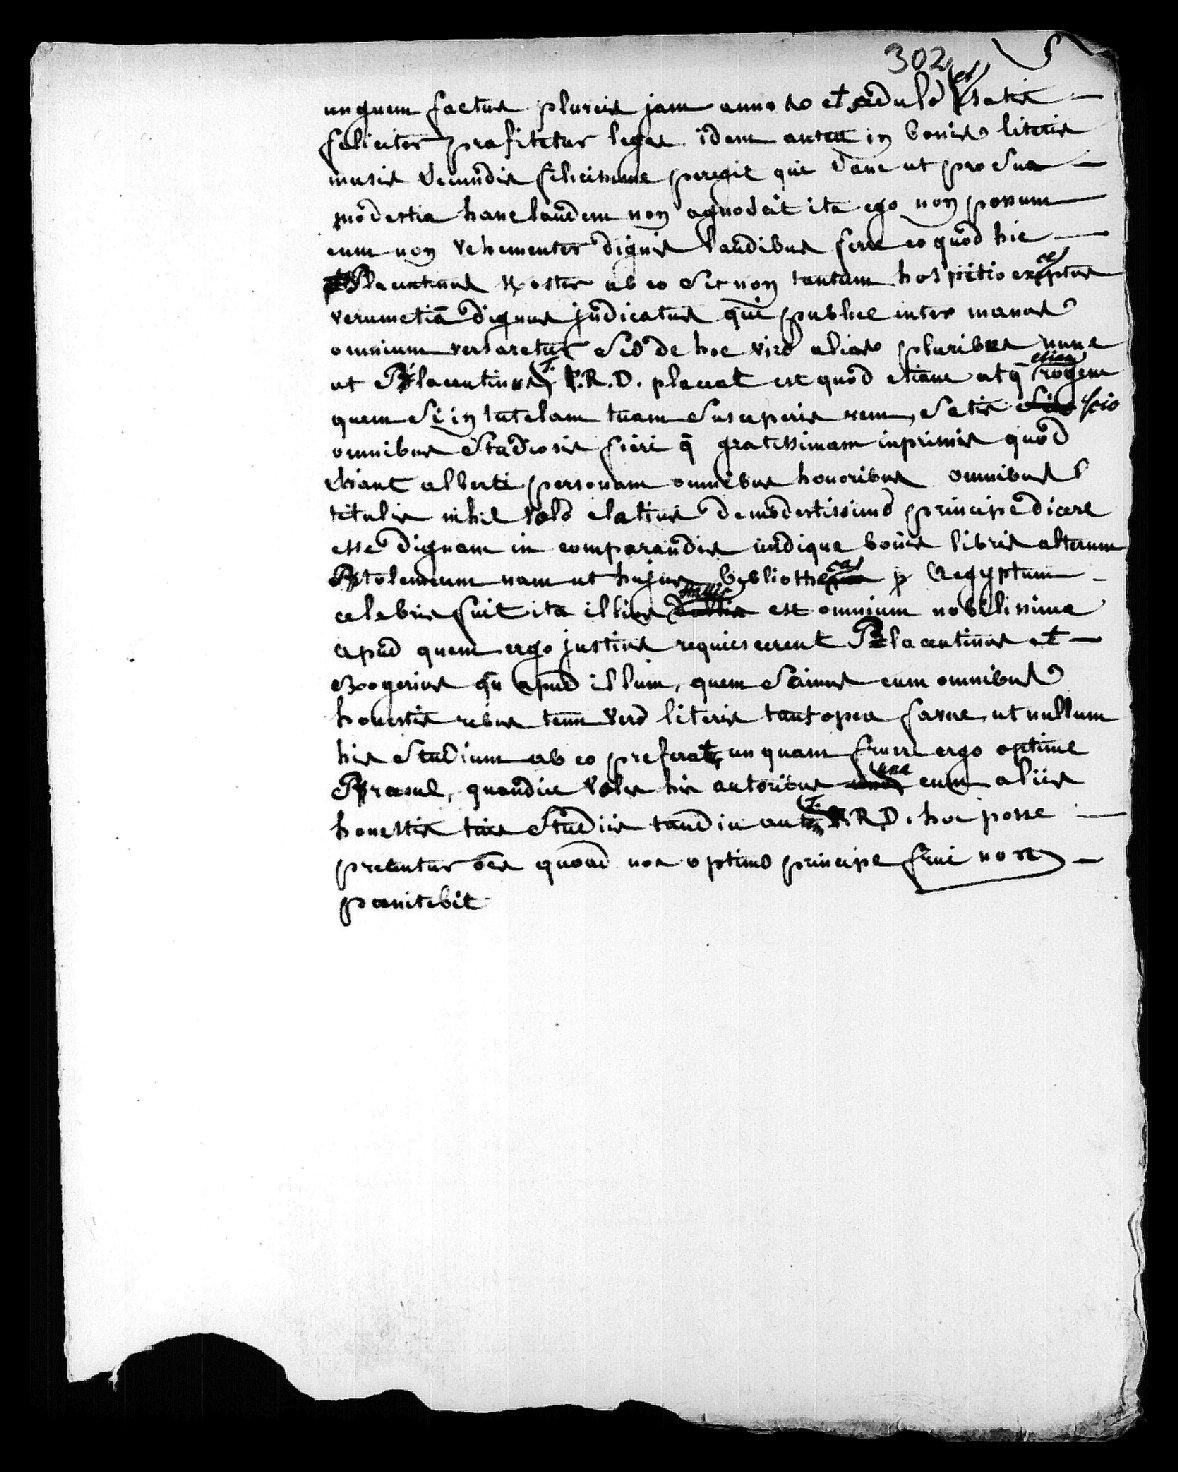 302
unquem factus plureis jam annos et sedulo et satis
feliciter profitetur leges idem autem in bonis literis
musis secundis felicissime peregit qui sane ut pro sua
modestia hanc laudem non agnoscit ita ego non possum
eum non vehementer dignis laudibus ferre eo quod hic
Placentinus noster ab eo sit non tantum hospitio exceptus
verumetiã dignus judicatus qui publice inter manus
omnium versaretur sed de hoc viro alias pluribus nunc
ut Placentinus T. R. D. placeat est quod etiam atq etiam rogem
quem si in tutelam tuam susceperis rem satis scio
omnibus studiosis fieri q gratissimam inprimis quod
alberti personam omnibus honoribus omnibus
titulis nihil elatius de modestissimo principe dicere
esse dignam in comparandis undique bonis libris alterum
Ptolemeum nam ut hujus bibliotheca p Aegyptum
celebris fuit ita illius est omnium nobilissima
apud quem ergo justius requiescerent Placentinus et
Rogerius q̃ apud illum, quem scimus cum omnibus
honestis rebus tum vero literis tantopere favere, ut nullum
his studium ab eo preferat unquam fruere ergo optime
Præsul, quandiu voles his autoribus una cum aliis
honestis tuis studiis tandiu autem T. R. D. hoc posse
precantur oẽs quoad nos optimo principe frui non
pœnitebit